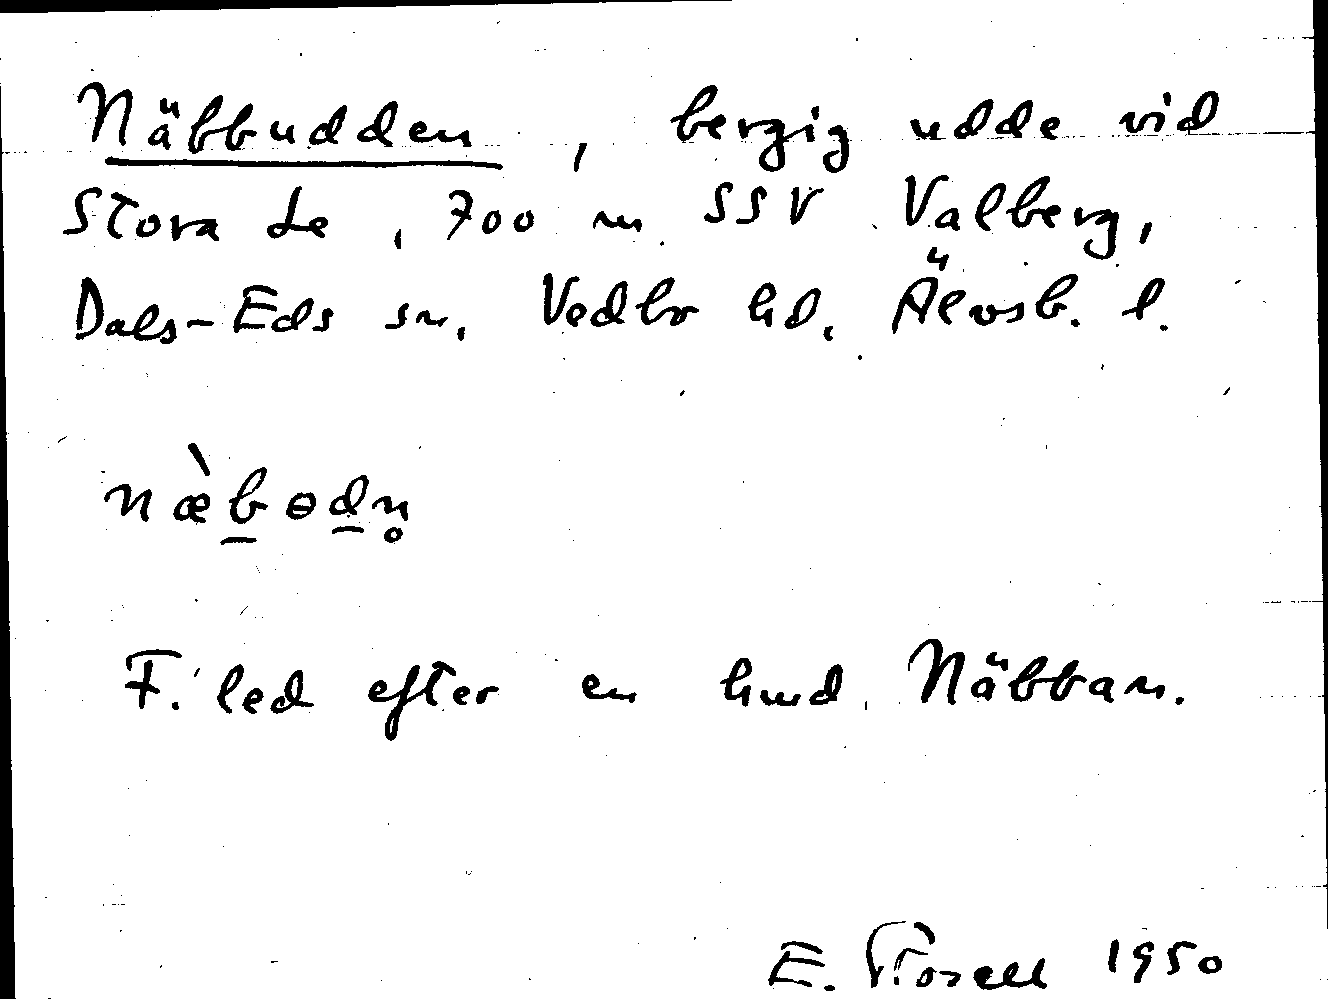 Näbbudden, bergig udde vid
Stora Le, 700 m SSV Valberg,
Dals-Eds sn. Vedbo hd. Älvsb. l.
næ̀b̲ɵd̲n̥
F. led efter en hund, Näbban.
E. 1950